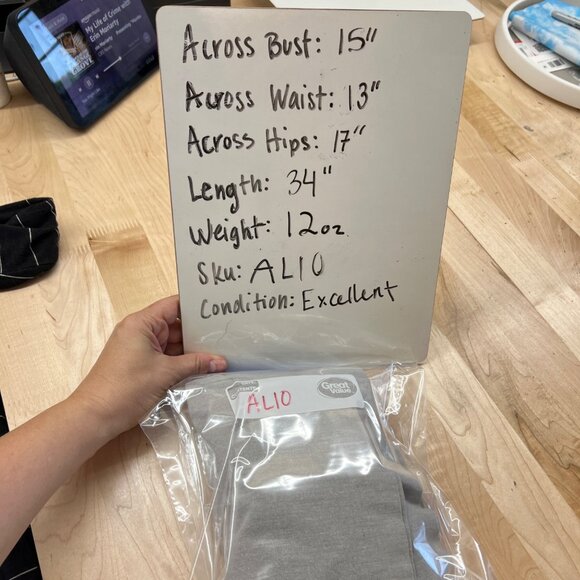 My Life of Crime with
Erin Moriarty
Across Bust: 15"
Across Waist: 13"
Across Hips: 17"
Length: 34"
Weight: 12oz
Sku: AL10
Condition: Excellent
Great
Value
AL10